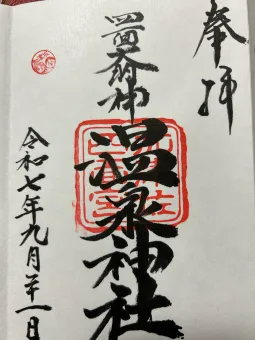 奉拝
四面大明神
温泉神社
令和七年九月二十一日